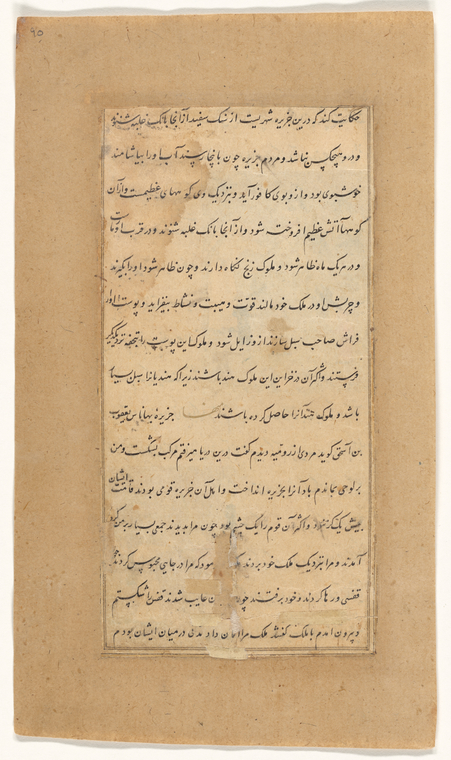 ۹۵
حکایت کند که درین جزیره شهریست از سنگ سفید از آنجا بانگ جلبه شنوند
و در و هیچکس نباشد و مردم جزیره چون بانجا رسند آب او را بیاشامند
خوشبوی بود و ازو بوی کافور آید و نزدیک وی کوههای عظیمست و ازان
کوهها آتش عظیم افروخته شود و از آنجا بانک غلبه شنوند و در قرب
و در هریک ماه ظاهر شود و ملوک زنج نگاه دارند و چون ظاهر شود او را بگیرند
و چربش او در ملک خود مالند قوت و هیبت و نشاط بیفزاید و پوست او را
فراش صاحب سل سازند ازو زایل شود و ملوک این پوست را بتحفه نزد یکدیگر
فرستند و اکثر آن در خزاین ملوک هند باشند زیرا که هندیانرا سل بسیار
باشد و ملوک آنرا حاصل کرده باشند جزیره یعقوب
بن اسحق کوید مردی از رومیه دیدم گفت درین دریا میرفتم مرکب بشکست و من
بر لوحی بماندم باد آنرا بجزیره انداخت و اهل آن جزیره قومی بودند قامت ایشان
بیش یک کز نبود و اکثر آن قوم را یک چشم بود چون مرا بدیدند جمع بسیار بر من کرد
آمدند و مرا نزدیک ملک خود بردند فرمود که مرا در جایی محبوس کردند
قفسی و رها کردند و خود برفتند چون غایب شدند قفس را شکستم
و بیرون آمدم با ملک گفتند ملک مرا امان داد مدتی درمیان ایشان بودم